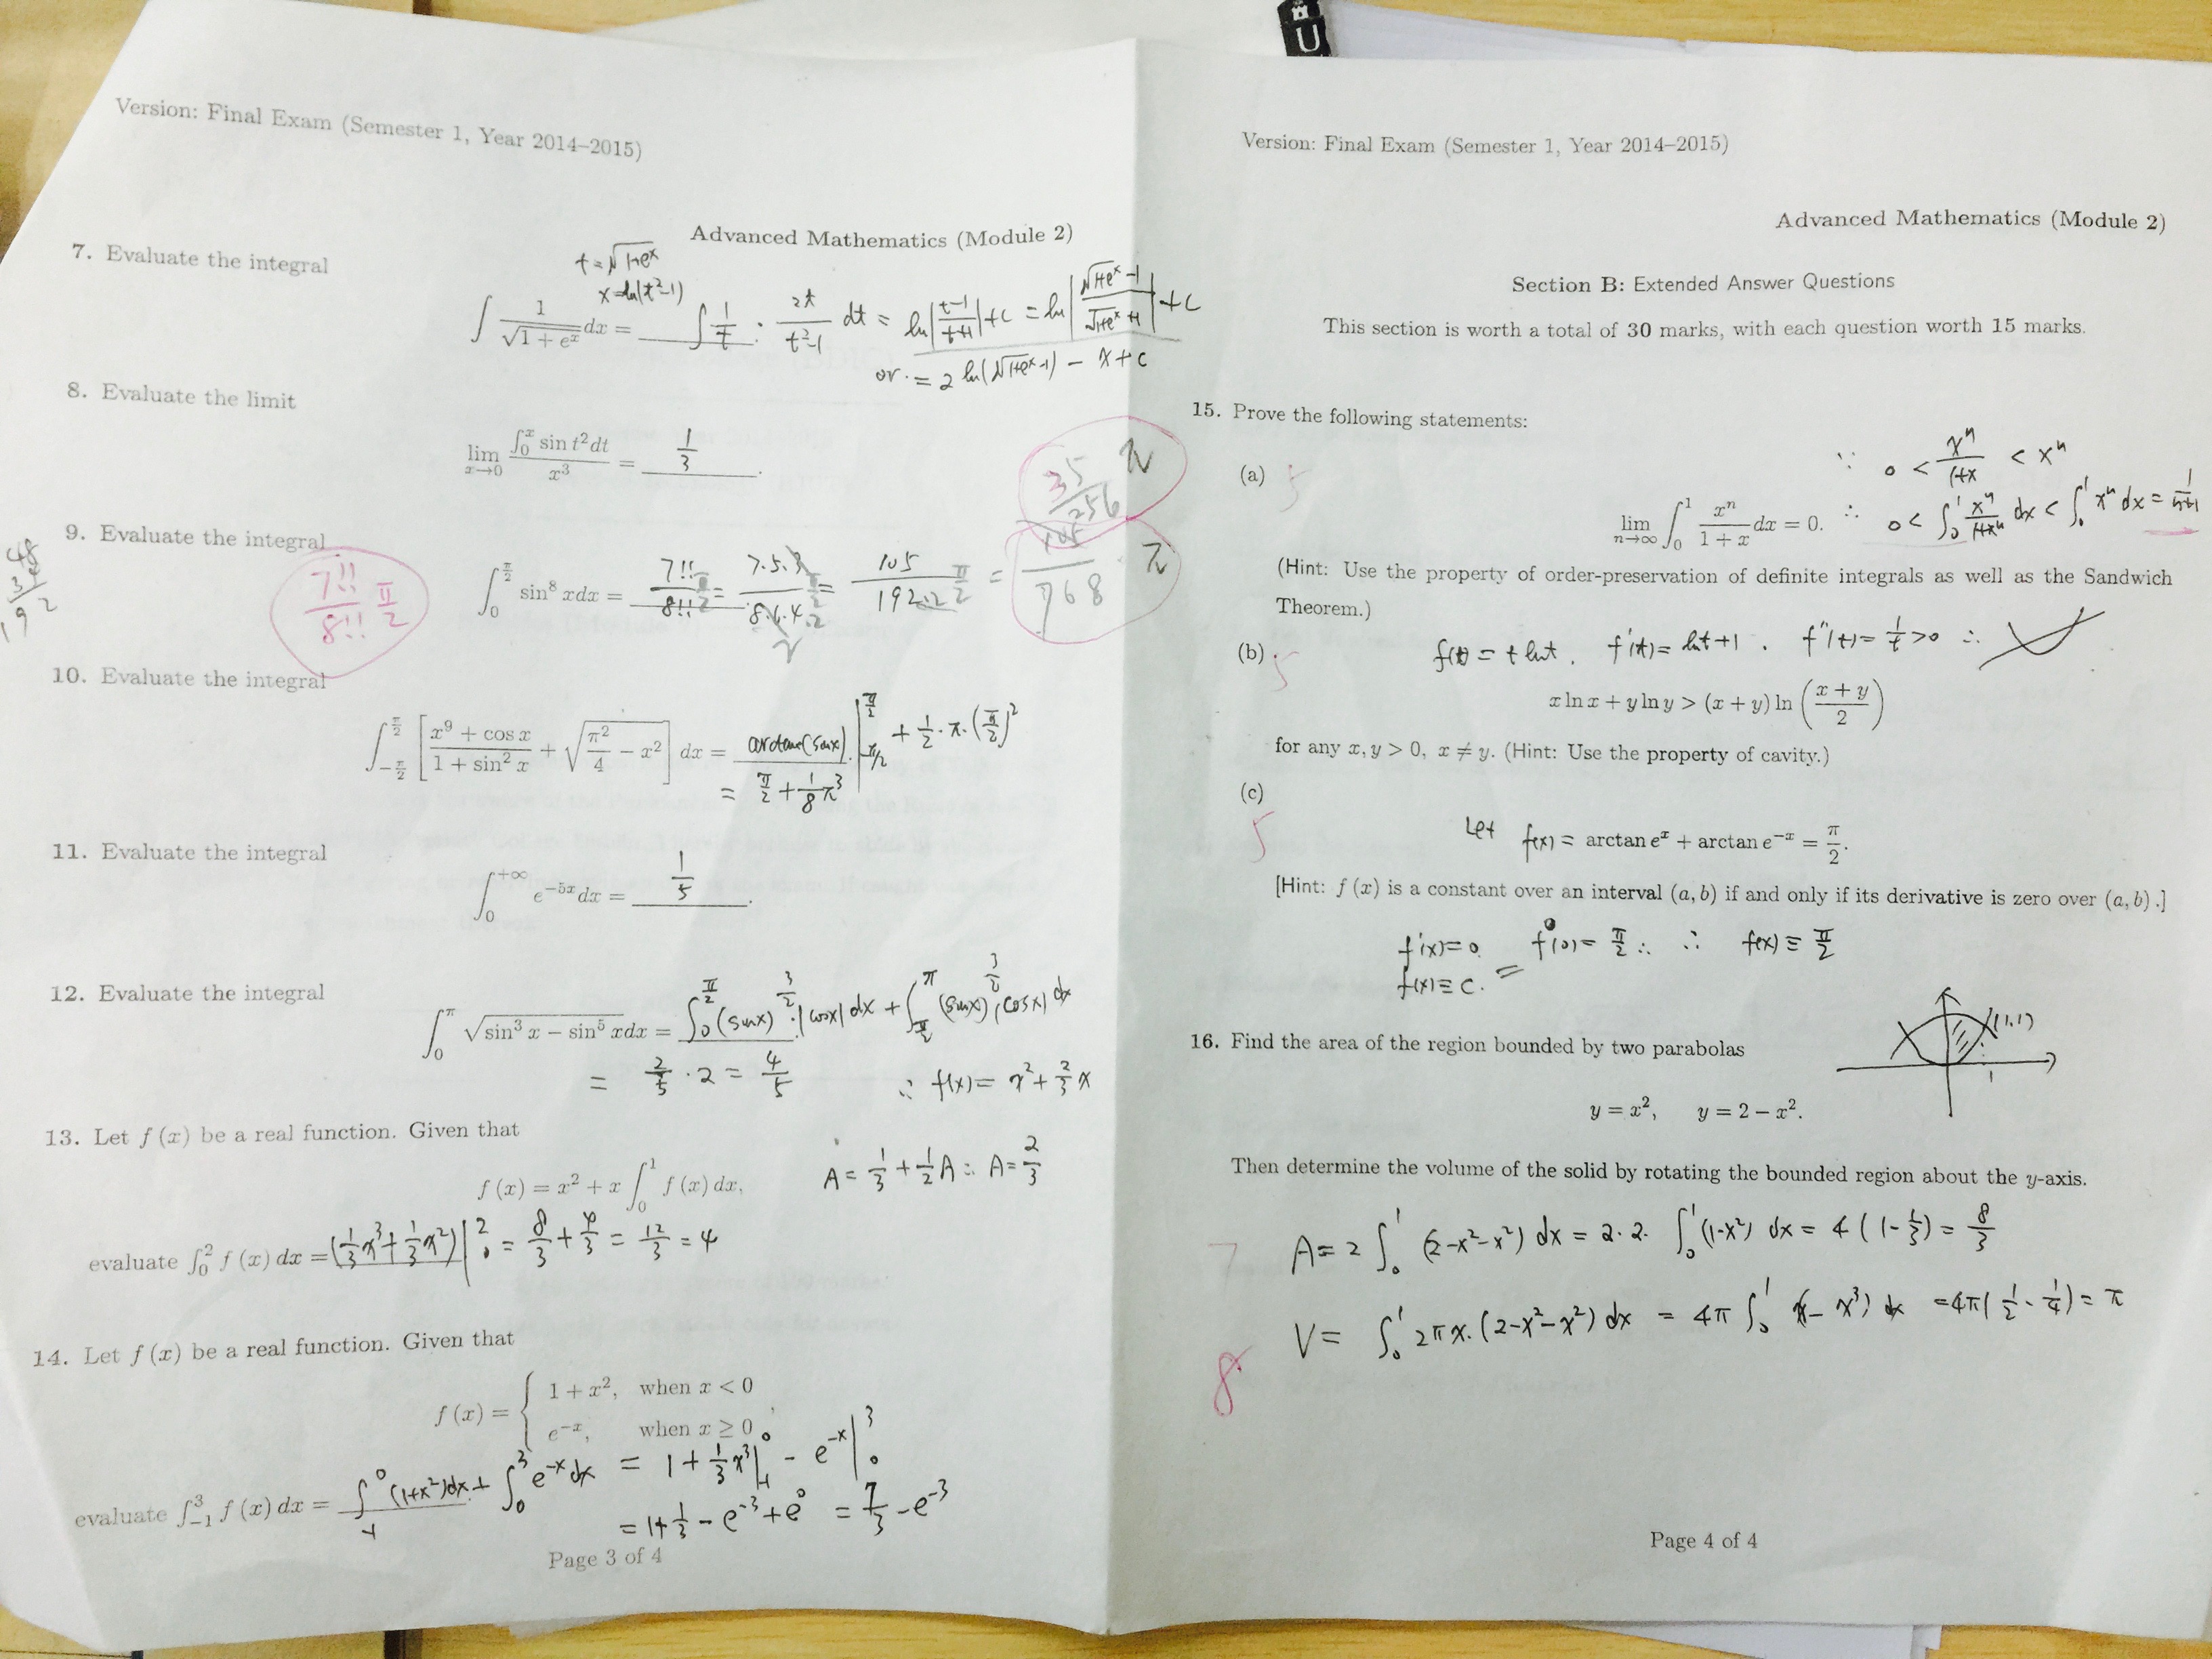 U
Version: Final Exam (Semester 1, Year 2014–2015)
Advanced Mathematics (Module 2)
7. Evaluate the integral
t = √(1+e^x)
x = ln(t²-1)
∫ 1/√(1 + e^x) dx = ∫ 1/t · 2t/(t²-1) dt = ln|(t-1)/(t+1)| + c = ln|(√(1+e^x) - 1)/(√(1+e^x) + 1)| + c
or = 2 ln(√(1+e^x) - 1) - x + c
8. Evaluate the limit
lim x→0 ∫_0^x sin t² dt / x³ = 1/3 .
35/256 π
9. Evaluate the integral
7!!/8!! π/2
∫_0^{π/2} sin⁸ x dx = 7!!/8!! π/2 = 7·5·3/8·6·4·2 π/2 = 105/192·2 π/2 = 105/768 π
10. Evaluate the integral
∫_{-π/2}^{π/2} [ (x⁹ + cos x)/(1 + sin² x) + √(π²/4 − x²) ] dx = arctan(sinx) |_{-π/2}^{π/2} + 1/2 · π · (π/2)²
= π/2 + 1/8 π³
11. Evaluate the integral
∫_0^{+∞} e^{−5x} dx = 1/5 .
12. Evaluate the integral
∫_0^π √(sin³ x − sin⁵ x) dx = ∫_0^{π/2} (sinx)^{3/2} · |cosx| dx + ∫_{π/2}^π (sinx)^{3/2} |cosx| dx
= 2/5 · 2 = 4/5
∴ f(x) = x² + 2/3 x
13. Let f (x) be a real function. Given that
f (x) = x² + x ∫_0^1 f (x) dx,
A = 1/3 + 1/2 A ∴ A = 2/3
evaluate ∫_0^2 f (x) dx = (1/3 x³ + 1/3 x²) |_0^2 = 8/3 + 4/3 = 12/3 = 4
14. Let f (x) be a real function. Given that
f (x) = { 1 + x², when x < 0
e^{−x}, when x ≥ 0 ,
evaluate ∫_{−1}^3 f (x) dx = ∫_{-1}^0 (1+x²)dx + ∫_0^3 e^{-x} dx = 1 + 1/3 x³ |_{-1}^0 - e^{-x} |_0^3
= 1 + 1/3 - e^{-3} + e^0 = 7/3 - e^{-3}
Page 3 of 4
Version: Final Exam (Semester 1, Year 2014–2015)
Advanced Mathematics (Module 2)
Section B: Extended Answer Questions
This section is worth a total of 30 marks, with each question worth 15 marks.
15. Prove the following statements:
(a) 5
∵ 0 < x^n/(1+x) < x^n
lim n→∞ ∫_0^1 x^n/(1 + x) dx = 0.
∴ 0 < ∫_0^1 x^n/(1+x^n) dx < ∫_0^1 x^n dx = 1/(n+1)
(Hint: Use the property of order-preservation of definite integrals as well as the Sandwich
Theorem.)
(b) 5
f(t) = t lnt , f'(t) = lnt + 1 . f''(t) = 1/t > 0 ∴
x ln x + y ln y > (x + y) ln ( (x + y)/2 )
for any x, y > 0, x ≠ y. (Hint: Use the property of cavity.)
(c) 5
Let f(x) = arctan e^x + arctan e^{−x} = π/2.
[Hint: f (x) is a constant over an interval (a, b) if and only if its derivative is zero over (a, b) .]
f'(x) = 0 f(0) = π/2 ∴ ∴ f(x) ≡ π/2
f(x) ≡ c.
(1,1)
1
16. Find the area of the region bounded by two parabolas
y = x², y = 2 − x².
Then determine the volume of the solid by rotating the bounded region about the y-axis.
7 A = 2 ∫_0^1 (2-x²-x²) dx = 2·2· ∫_0^1 (1-x²) dx = 4 (1 - 1/3) = 8/3
8 V = ∫_0^1 2πx·(2-x²-x²) dx = 4π ∫_0^1 (x - x³) dx = 4π(1/2 - 1/4) = π
Page 4 of 4